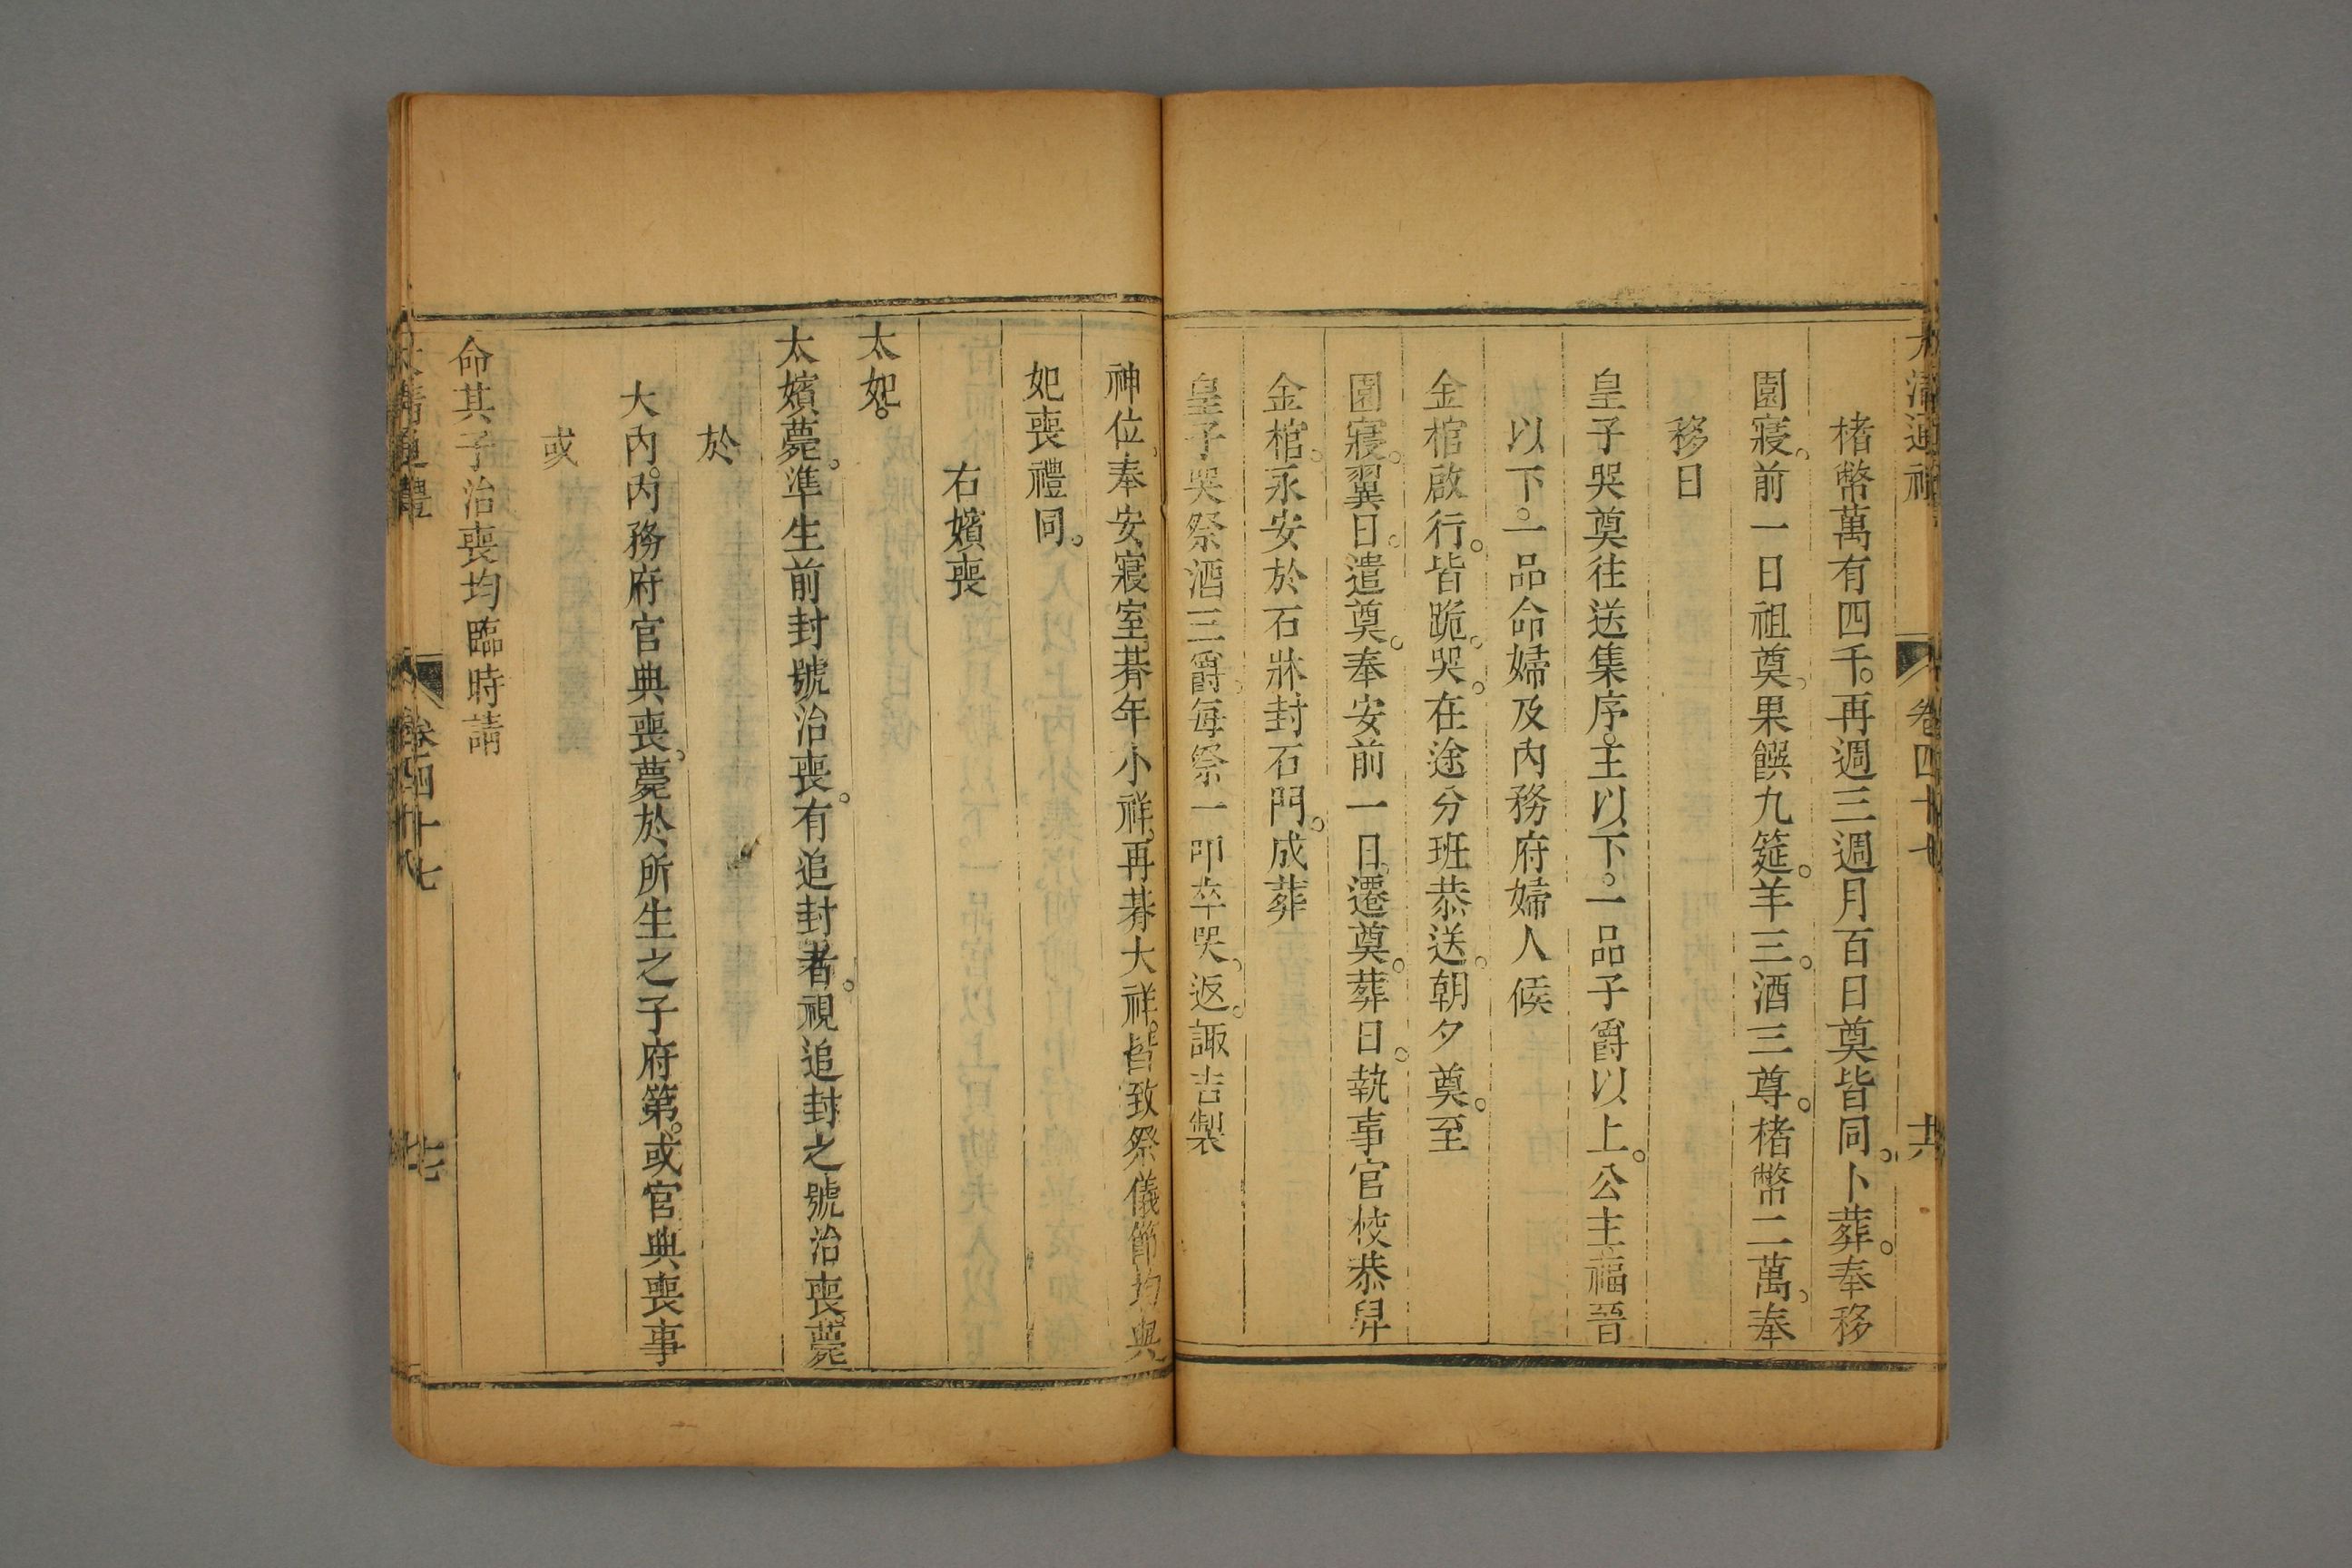 大清通禮 卷四十七 共
楮幣萬有四千。再週三週月百日奠皆同。卜葬。奉移
園寢。前一日祖奠。果饌九筵。羊三。酒三尊。楮幣二萬。奉
移日
皇子哭奠往送集序。主以下。一品子爵以上。公主福晉
以下。一品命婦及內務府婦人候
金棺啟行。皆跪。哭。在途分班恭送。朝夕奠。至
園寢。翼日。遣奠。奉安前一日。遷奠。葬日。執事官校恭舁
金棺。永安於石牀封石門。成葬
皇子哭祭酒三爵。每祭一叩卒哭。返。諏吉製
神位。奉安寢室。朞年小祥。再朞大祥。皆致祭儀節均與
妃喪禮同。
右嬪喪
太妃。
太嬪薨。準生前封號治喪。有追封者。視追封之號治喪。薨
於
大內。內務府官典喪。薨於所生之子府第。或官典喪事
或
命其子治喪均臨時請
大清通禮 卷四十七 七